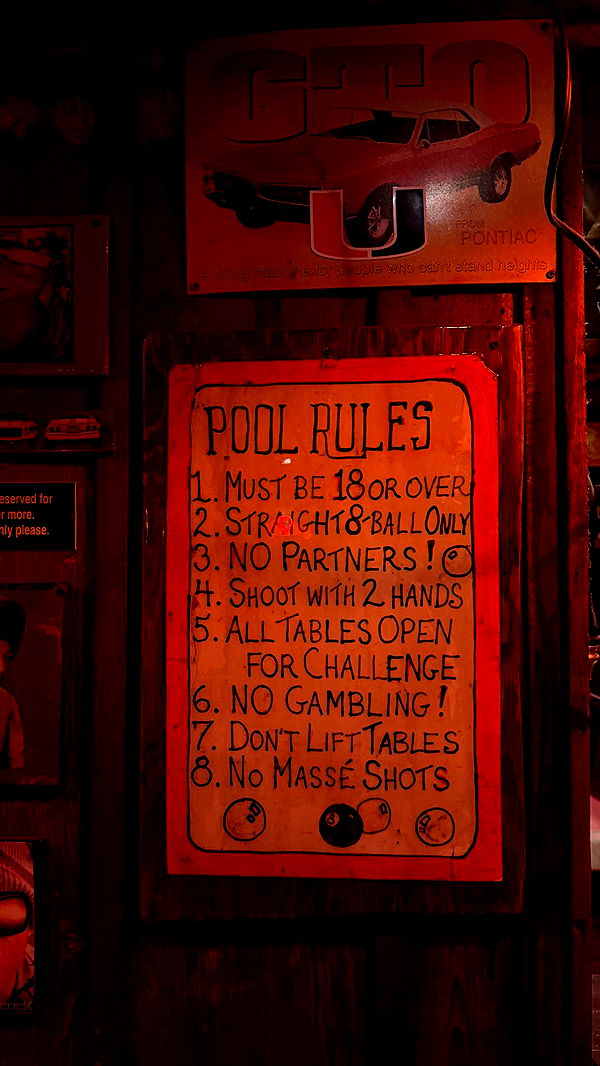 GTO
U
FROM
PONTIAC
A flying machine for people who can't stand heights
POOL RULES
1. MUST BE 18 OR OVER
2. STRAIGHT 8-BALL ONLY
3. NO PARTNERS!
4. SHOOT WITH 2 HANDS
5. ALL TABLES OPEN
FOR CHALLENGE
6. NO GAMBLING!
7. DON'T LIFT TABLES
8. NO MASSÉ SHOTS
eserved for
r more.
nly please.